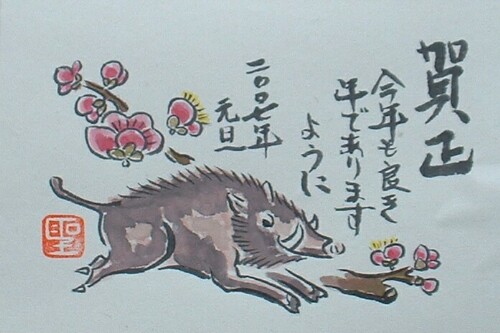 賀正
今年も良き
年であります
ように
二〇〇七年
元旦
聖